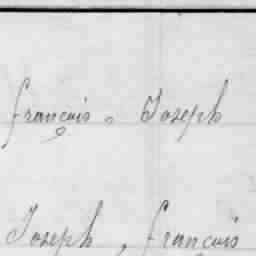 françois, Joseph
Joseph, françois